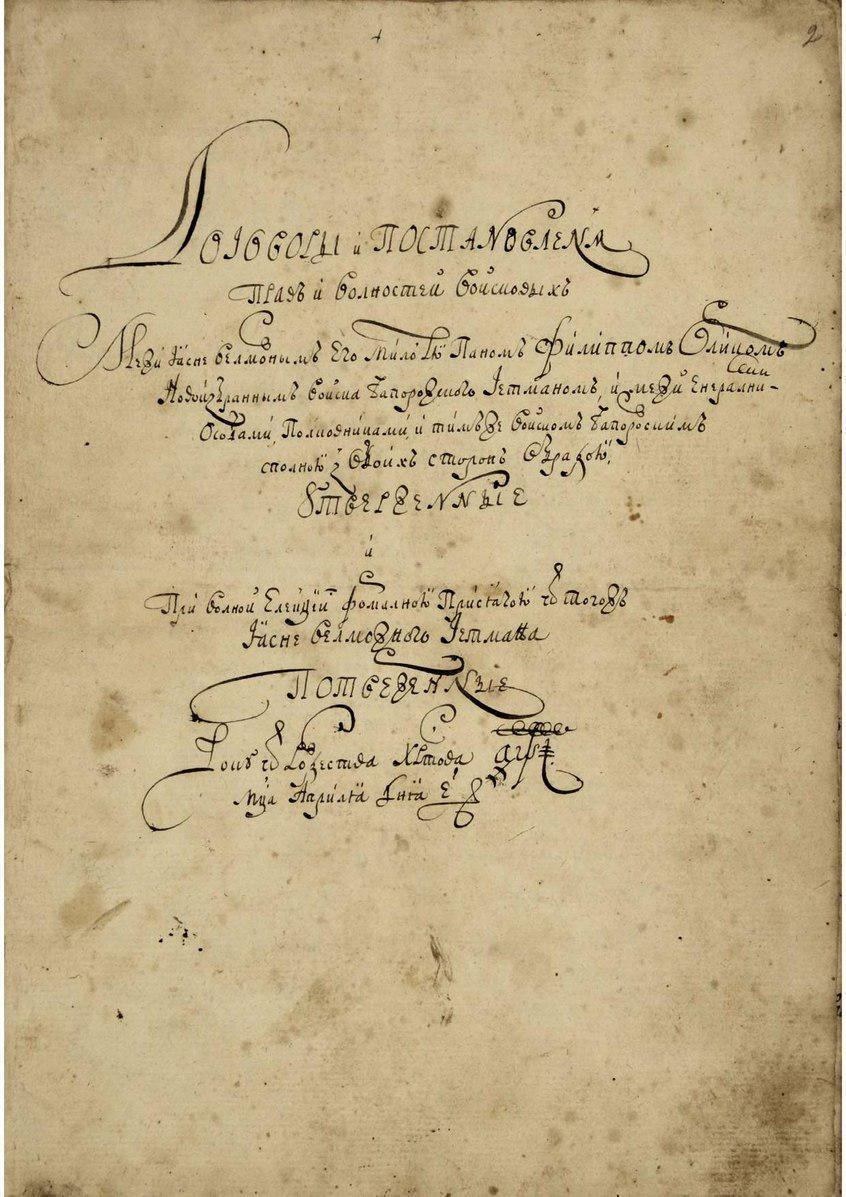 2
Договоры и Постановленѧ
Правъ и волностей войсковыхъ
Межи Ꙗсне велможнымъ Его Милостю Паномъ Филиппомъ Орликомъ
Новоизбраннымъ войска Запорожского Гетманомъ, и межи Енералними
Особами, Полковниками, и тимъже войскомъ Запорозскимъ
сполною з обоихъ сторонъ обрадою,
Утверженные
и
При волной Елекции формалною присѧгою ѿ тогожъ
Ꙗсне велможного Гетмана
Потвержен­ные
Року ѿ Рожества Христова ҂аѱі
Мсца Априлѧ днѧ є҃